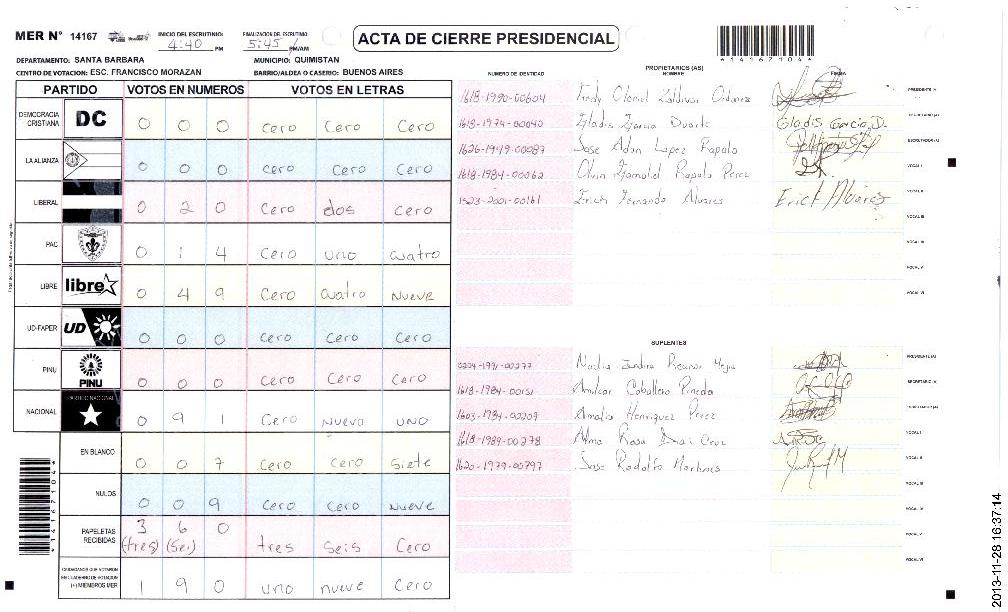 MER N° 14167
INICIO DEL ESCRUTINIO: 4:40 PM
FINALIZACION DEL ESCRUTINIO: 5:45 PM/AM
ACTA DE CIERRE PRESIDENCIAL
*141671044*
DEPARTAMENTO: SANTA BARBARA
MUNICIPIO: QUIMISTAN
CENTRO DE VOTACION: ESC. FRANCISCO MORAZAN
BARRIO/ALDEA O CASERIO: BUENOS AIRES
PARTIDO VOTOS EN NUMEROS VOTOS EN LETRAS
DEMOCRACIA CRISTIANA DC 0 0 0 Cero Cero Cero
LA ALIANZA 0 0 0 Cero Cero Cero
LIBERAL 0 2 0 Cero dos Cero
PAC 0 1 4 Cero uno cuatro
LIBRE libre 0 4 9 Cero cuatro Nueve
UD-FAPER UD 0 0 0 Cero Cero Cero
PINU PINU 0 0 0 Cero Cero Cero
NACIONAL PARTIDO NACIONAL 0 9 1 Cero Nueve UNO
EN BLANCO 0 0 7 Cero Cero Siete
NULOS 0 0 9 Cero Cero Nueve
PAPELETAS RECIBIDAS 3 6 0 (tres) (Sei) tres Seis Cero
CIUDADANOS QUE VOTARON EN CUADERNO DE VOTACION (+) MIEMBROS MER 1 9 0 uno nueve Cero
PROPIETARIOS (AS)
NUMERO DE IDENTIDAD NOMBRE FIRMA
1618-1990-00604 PRESIDENTE (A)
1618-1974-00040 Gladis Garcia Duarte Gladis Garcia D. SECRETARIO (A)
1626-1949-00087 Jose Adan Lopez Rapalo ESCRUTADOR (A)
1618-1984-00062 Olvin Gamaliel Rapalo Perez VOCAL I
1523-2001-00161 Erich Fernando Alvares Erick Alvarez VOCAL II
VOCAL III
VOCAL IV
VOCAL V
VOCAL VI
SUPLENTES
Nadia Jandira Recarte Mejia PRESIDENTE (A)
1618-1984-00151 Amilcar Caballero Pineda SECRETARIO (A)
1603-1984-00209 Amalia Henriquez Perez
1618-1989-00278 Alma Rosa Diaz Cruz VOCAL I
1620-1979-00797 Jose Rodolfo Martines VOCAL II
VOCAL III
VOCAL IV
VOCAL V
VOCAL VI
*141671044*
2013-11-28 16:37:14